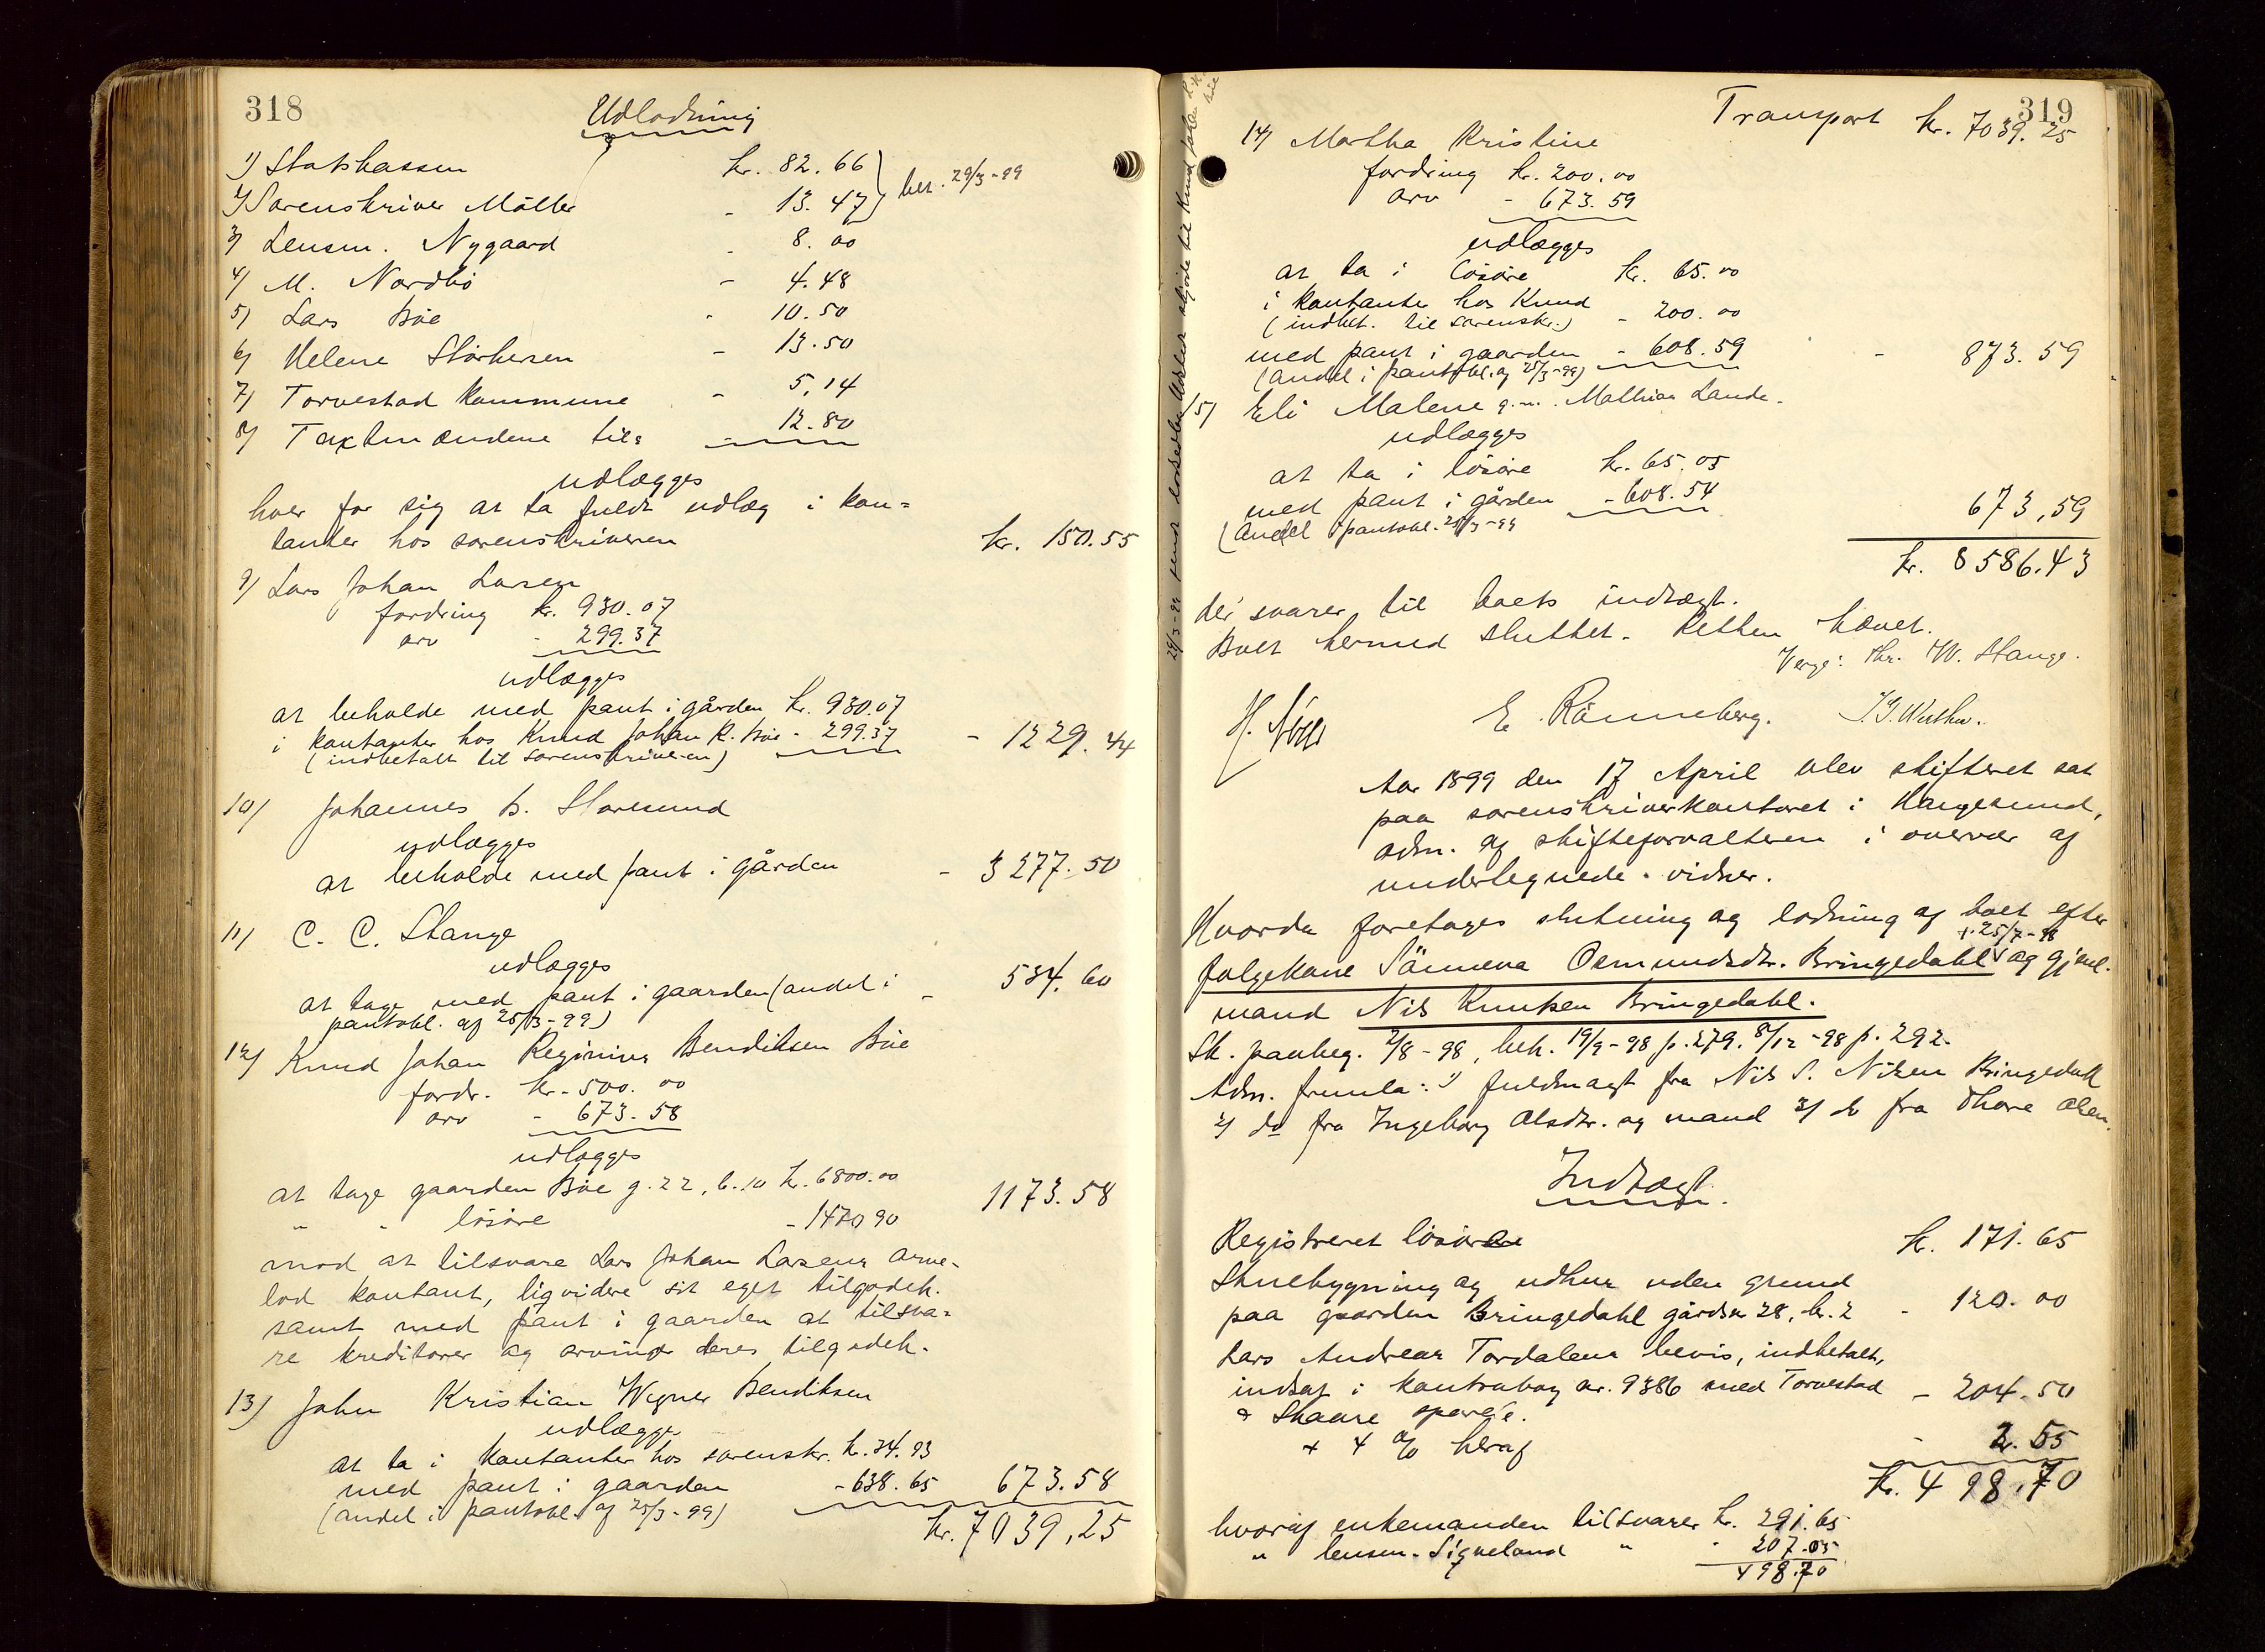 318
Udlodning
1) Statskassen kr. 82.66
2) Sorenskriver Möller - 13.47 } bet. 29/3-99
3) Lensm. Nygaard - 8.00
4) M. Nordbö - 4.48
5) Lars Böe - 10.50
6) Helene Störkersen - 13.50
7) Torvestad kommune - 5,14
8) Taxtmændene tils - 12.80
udlægges
hver for sig at ta fuldt udlæg i kon=
tanter hos sorenskriveren kr. 150.55
9) Lars Johan Larsen
fordring kr. 930.07
arv - 299.37
udlægges
at beholde med pant i gården kr. 930.07
i kontanter hos Knud Johan R. Böe - 299.37 - 1229.44
(indbetalt til sorenskriveren)
10) Johannes B. Storesund
udlægges
at beholde med pant i gården - 3277.50
11) C. C. Stange
udlægges
at tage med pant i gaarden (andel i - 534.60
pantobl. af 25/3-99)
12) Knud Johan Reginius Bendiksen Böe
fordr. kr. 500.00
arv - 673.58
udlægges
at tage gaarden Böe g. 22, b. 10 kr. 6800.00 1173.58
" - lösöre - 1470 90
mod at tilsvare Lars Johan Larsens arve-
lod kontant, ligvidere sit eget tilgodeh.
samt med pant i gaarden at tilsva=
re kreditorer og arvinger deres tilgodeh.
13) John Kristian Wegner Bendiksen
udlægges
at ta i kontanter hos sorenskr. kr. 34.93
med pant i gaarden - 638.65 673.58
(andel i pantobl. af 25/3-99)
kr. 7039,25
319
Transport kr. 7039.25
14) Martha Kristine
fordring kr. 200.00
arv - 673.59
udlægges
at ta i lösöre kr. 65.00
i kontanter hos Knud - 200.00
(indbet. til sorenskr.)
med pant i gaarden - 608.59 - 873.59
(andel i pantobl. af 25/3-99)
15) Eli Malene g.m. Mathias Lande.
udlægges
at ta i lösöre kr. 65.05
med pant i gården - 608.54 673,59
(Andel i pantobl. 25/3-99
kr. 8586.43
der svarer til boets indtægt.
Boet hermed sluttet. Retten hævet.
Verge: Chr. W. Stange.
E. Rönneberg.
Aar 1899 den 17 April blev skifteret sat
paa sorenskriverkontoret i Haugesund,
adm. af skifteforvalteren i overvær af
undertegnede vidner.
Hvorda foretoges slutning og lodning af boet efter
+ 25/7-98
folgekone Sönneva Osmundsdtr. Bringedahl og gjenl.
mand Nils Knutsen Bringedahl.
Sk. paabeg. 2/8-98, beh. 19/9-98 p. 279. 8/12-98 p. 292.
Adm. fremla: 1) fuldmagt fra Nils S. Nilsen Bringedahl
2) do fra Ingeborg Olsdtr. og mand 3) do fra Thore Olsen.
Indtægt.
Registreret lösöre kr. 171.65
Stuebygning og udhus uden grund
paa gaarden Bringedahl gårdsnr 28, br. 2 - 120.00
Lars Andreas Tordalens bevis, indbetalt,
indsat i kontrabog nr. 9386 med Torvestad - 204.50
& Skaare spareb.
+ 4 % heraf - 2.55
kr. 498,70
hvoraf enkemanden tilsvarer kr. 291.65
" lensm. Signeland " - 207.05
498.70